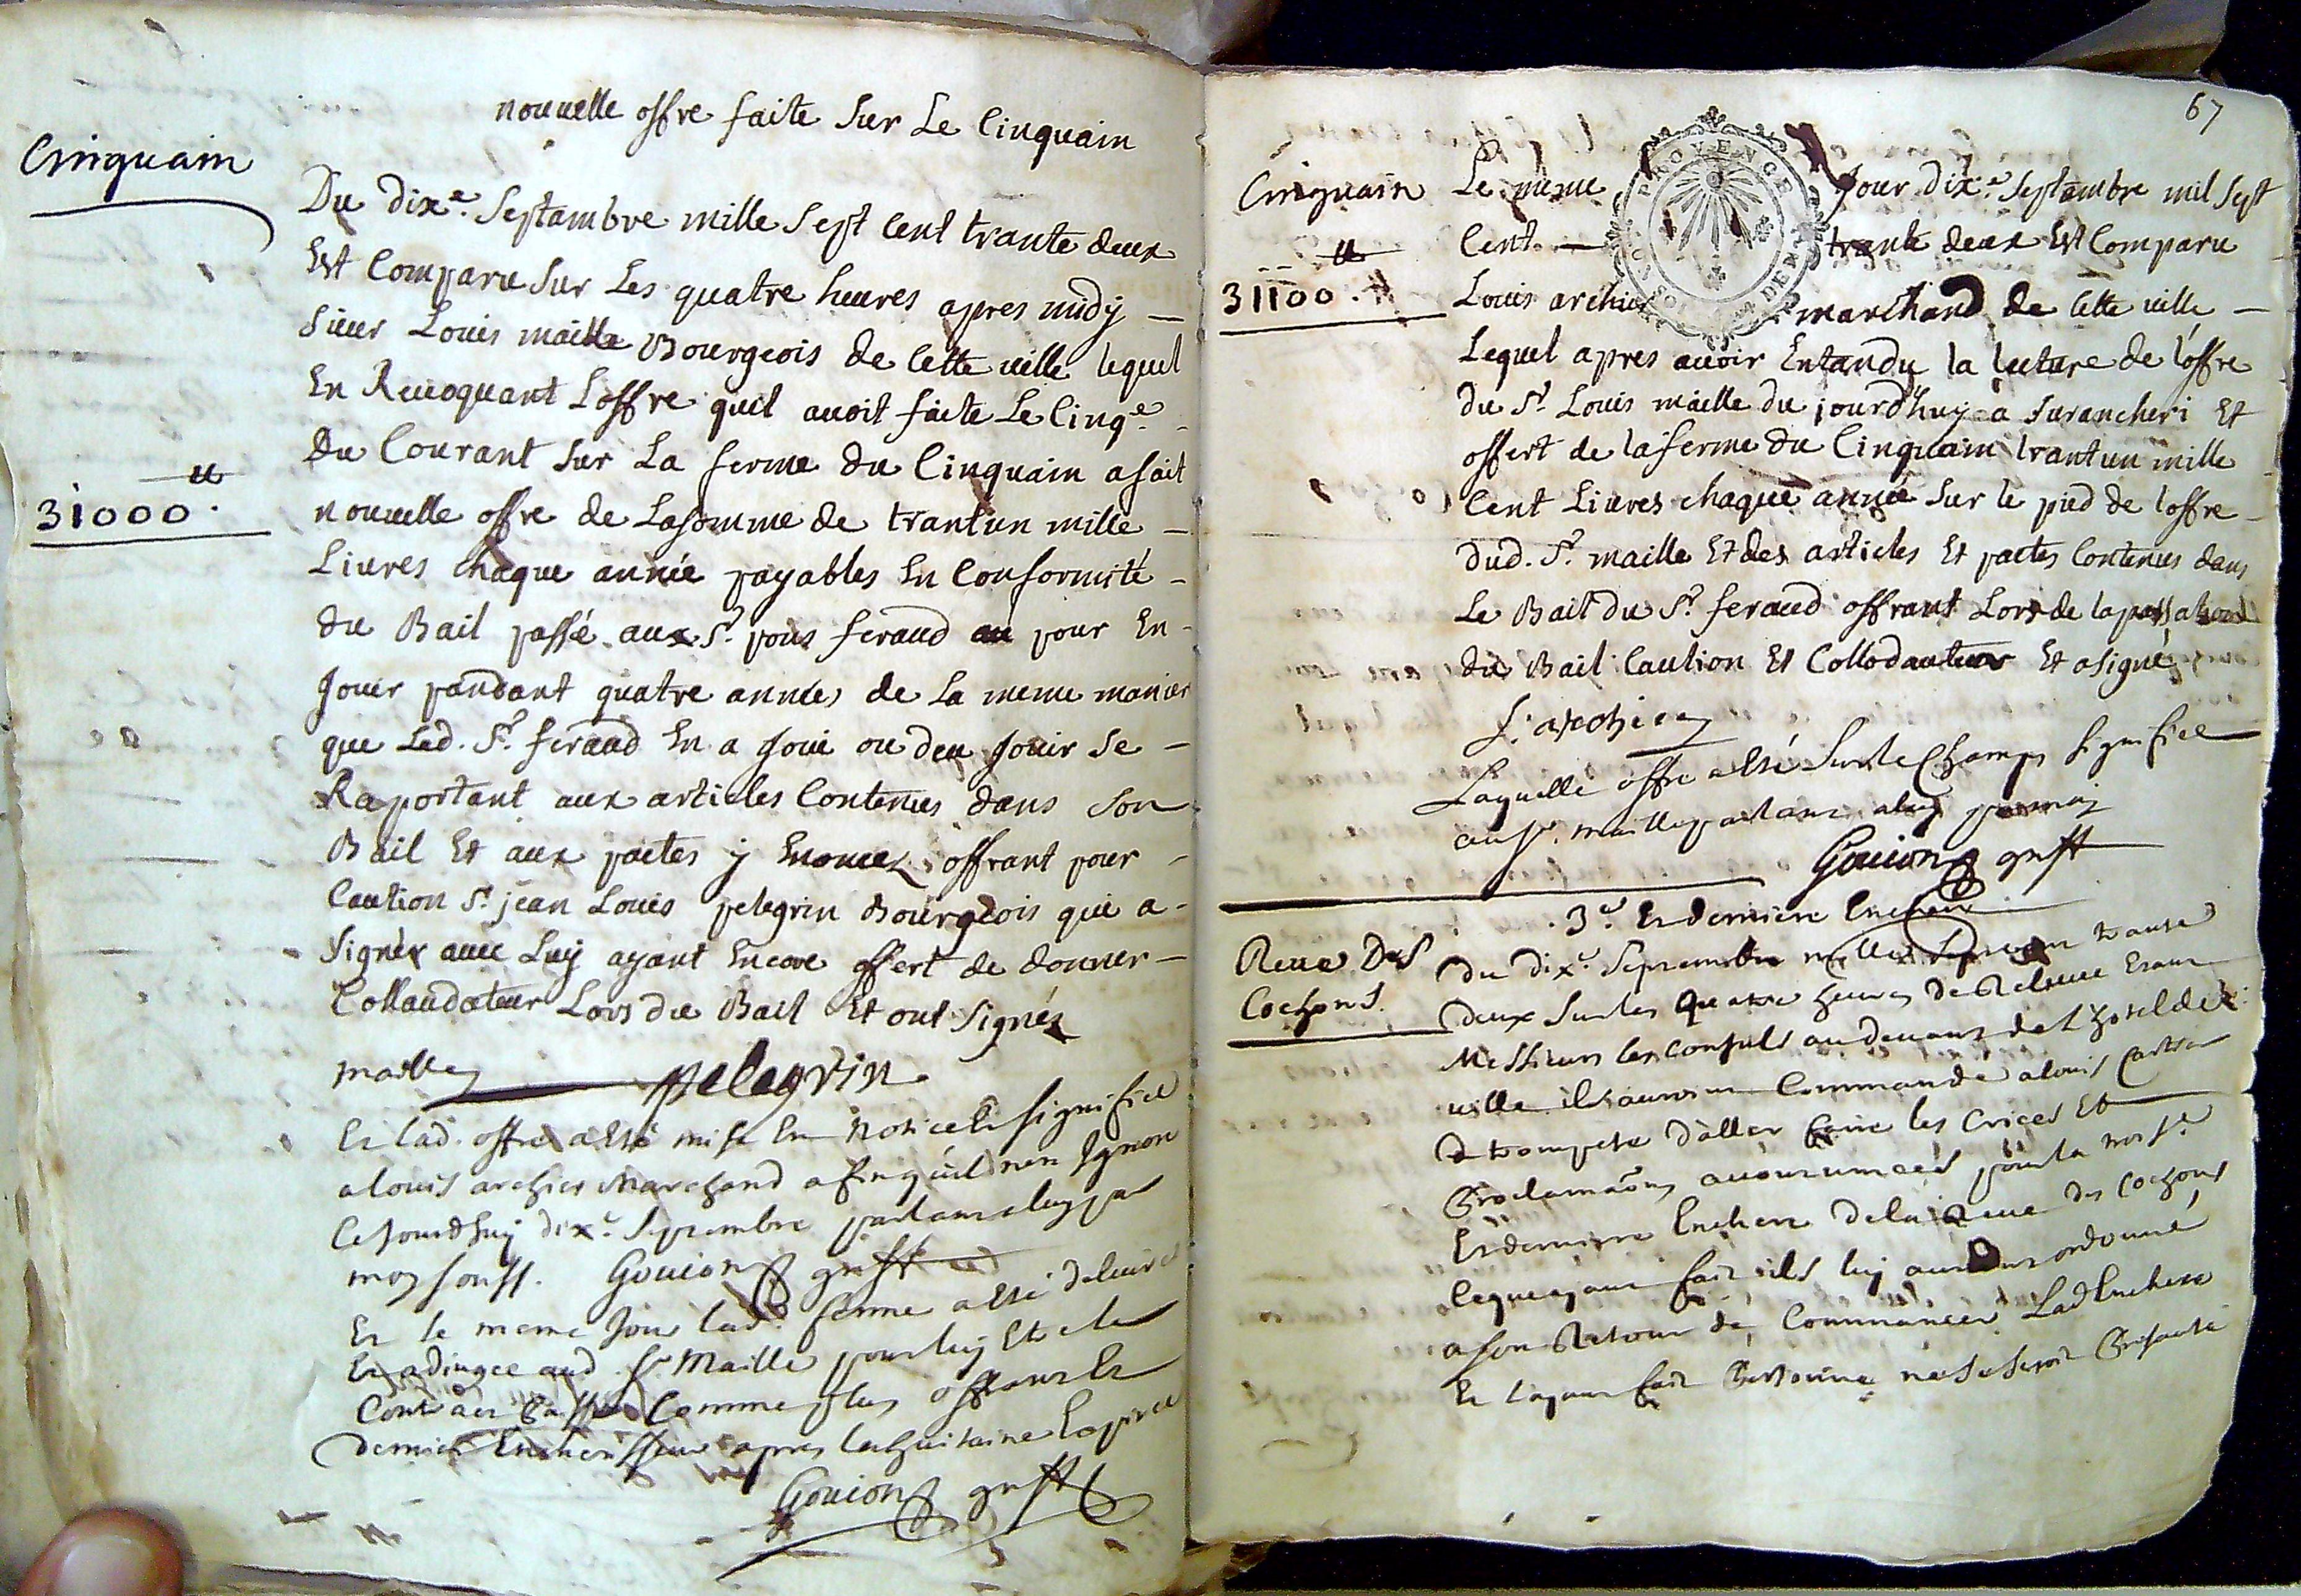 nouvelle offre faite sur Le Cinquain
Cinquain
Du dixe. Septambre mille sept cent trante deux
Est Comparu sur Les quatre heures apres midy —
sieur Louis maille Bourgeois de Cette ville lequel
En Revoquant L'offre quil avoit faite Le Cinqe.
Du Courant sur La ferme du Cinquain a fait
31000 ᵗᵗ.
nouvelle offre de La somme de trantun mille —
Livres chaque année payables En Conformité -
du Bail passé aux Sr. pons feraud au pour En -
Jouir pandant quatre années de La meme manier
que Led. Sr. feraud En a Joui ou deu Jouir se —
Raportant aux articles Contenus dans son
Bail Et aux pactes y Enoncez offrant pour -
Caution Sr. jean Louis pelegrin Bourgeois qui a -
signér avec Luy ayant Encore offert de donner —
Collaudateur Lors du Bail Et ont Signés
maille pelegrin
Et lad. offre a esté mise En Notice Et signifiée
a louis archier Marchand afin qu'il n'en Ignore
Ce jourdhuy dixe. Septembre parlant a luy par
moy souss. Gouion greff
Et le meme Jour lad. ferme a esté delivrée
Et adjugee aud. Sr. Maille pour luy Et
Comme plus offrant Et
dernier Encherisseur apres la huitaine Expirée
Gouion greff
67
Cinquain
Le meme Jour dixe. Septambre mil sept
Cent — trante deux Est Comparu
31100 ᵗᵗ.
Louis archier marchand de Cette ville —
Lequel apres avoir Entandu la lecture de l'offre
du Sr. Louis maille du jourd'huy a surancheri Et
offert de la ferme du Cinquain trantun mille
Cent Livres chaque année sur le pied de l'offre
dud. Sr. maille Et des articles Et pactes Contenus dans
Le Bail du Sr. feraud offrant Lors de la passation
du Bail Caution Et Collodauteur Et a signé
L. archier
Laquelle offre a esté sur le Champs signifiée
au Sr. maille parlant a luy par moy
Gouion greff
3e. Et derniere Enchere
Reve Des
Cochons.
du dixe. Septembre mille sept cent trante
deux sur les quatre heures de Relevée Etant
Messieurs les Consuls au devant de l'hotel de
ville ils auroint Commandé a louis
trompete d'aller faire les Criees Et
Proclamaõns accoutumées pour la troise.
Et derniere Enchere de la Reve des Cochons
lequel ayant fait ils luy auroint ordonné
a son Retour de Commancer Lad. Enchere
Et l'ayant fait Personne ne se seroit Presanté